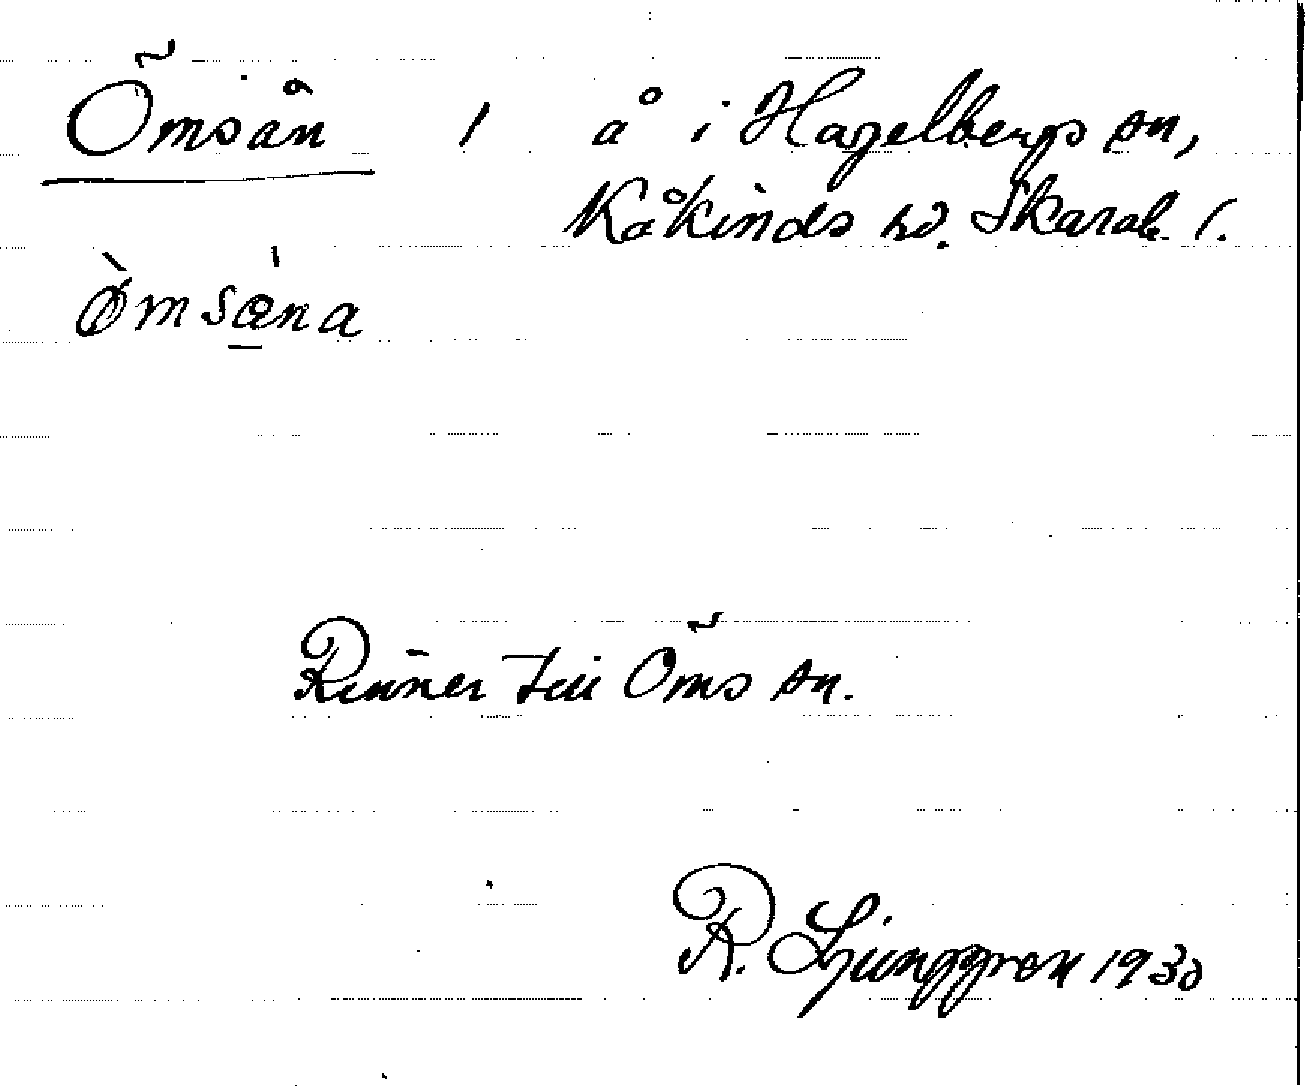 Ömsån / å i Hagelbergs sn,
Kåkinds hd. Skarab. l.
Ø̀msǿna
Rinner till Öms sn.
R. Ljunggren 1930